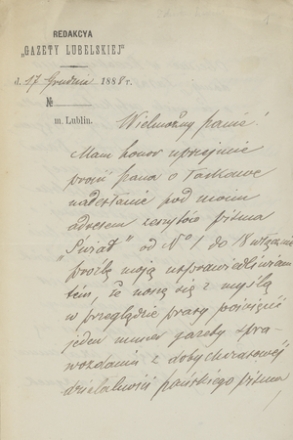 REDAKCYA
„GAZETY LUBELSKIEJ"
d. 17 Grudnia 1888 r.
№
m. Lublin.
Wielmożny panie!
Mam honor uprzejmie
prosić pana o łaskawe
nadesłanie pod moim
adresem zeszytów pisma
„Świat" od N° 1 do 18 włącznie
prośbę moją usprawiedliwiam
tém, iż noszę się z myślą
w przeglądzie prasy poświęcić
jeden numer gazety spra-
wozdaniu z dotychczasowéj
działalności pańskiego pisma